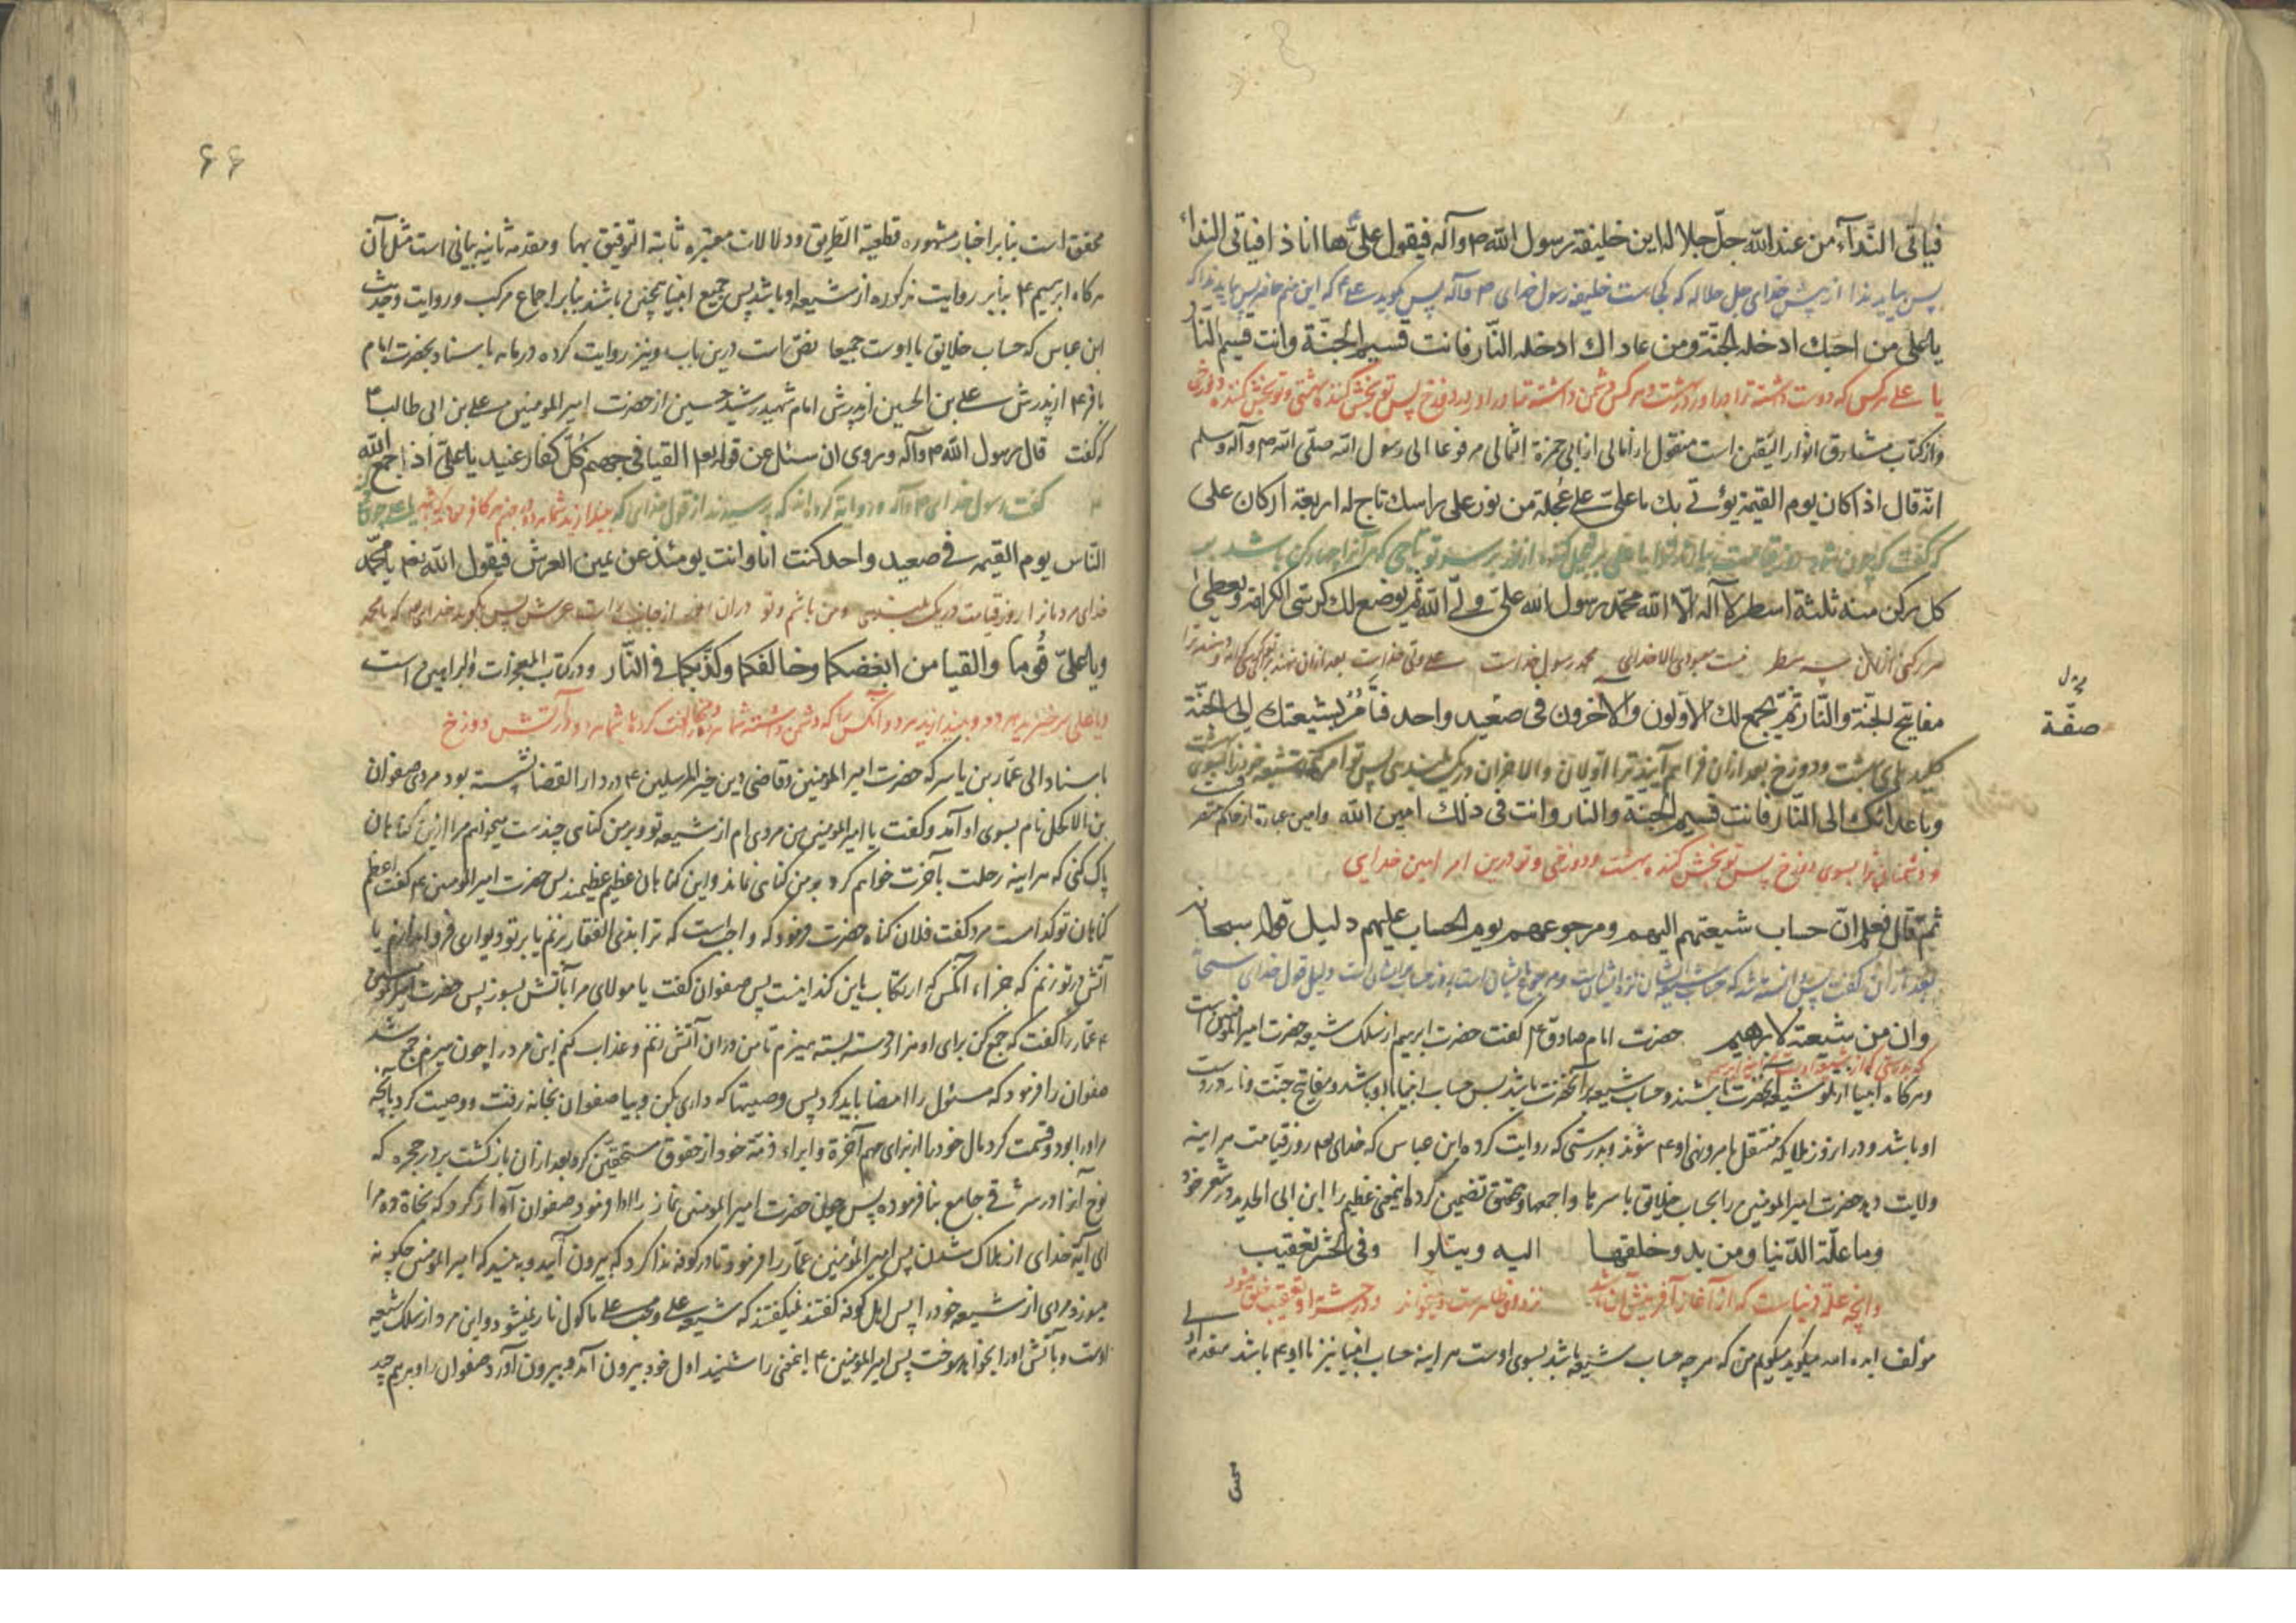 فیاتی النّدآء من عند الله جلّ جلاله این خلیفة رسول الله ص وآله فیقول علیّ ها انا ذا فیاتی النداء
پس بیاید ندا از پیش خدای جل جلاله که کجاست خلیفه رسول خدای ص وآله پس بگوید علی ع که این منم حاضر پس بیاید ندا که
یا علی من احبّک ادخله الجنّة ومن عاداک ادخله النّار فانت قسیم الجنّة وانت قسیم النّار
یا علی هر کس که دوست داشته ترا درآور در بهشت و هر کس دشمن داشته ترا درآور در دوزخ پس تو بخش کننده بهشتی وتو بخش کننده دوزخی
واز کتاب مشارق انوار الیقین است منقول از ابی حمزة الثمالی مرفوعا الی رسول الله صلّی الله وآله وسلم
انّه قال اذا کان یوم القیمة یؤتی بک یا علیّ علی عجلة من نور علی راسک تاج له اربعة ارکان علی
که گفت که چون شود روز قیامت بیارند ترا یا علی بر از نور بر سر تو تاجی که مر آنرا چهار رکن باشد بر
کل رکن منه ثلثة اسطر لا آله الّا الله محمّد رسول الله علیّ ولیّ الله ثم یوضع لک کرسیّ الکرامة ویعطی
هر رکنی از آن سه سطر نیست معبودی الا خدای محمد رسول خداست علی ولی خداست بعد ازان
مفاتیح الجنّة والنّار ثمّ یجمع لک الاوّلون والآخرون فی صعید واحد فتأمر بشیعتک الی الجنّة
بدل
صفّة
کلید های بهشت ودوزخ بعد ازان فراهم آیند ترا اولان والاخران در یک پس تو امر کنی شیعه خود را بسوی بهشت
وباعدائک الی النّار فانت قسیم الجنّة والنار وانت فی ذلک امین الله
ودشمنان ترا بسوی دوزخ پس تو بخش کننده بهشت ودوزخی وتو درین امر امین خدایی
ثمّ قال فعلم انّ حساب شیعتهم الیهم ومرجوعهم یوم الحساب علیهم دلیل قوله سبحانه
بعد ازان گفت پس دانسته شد که حساب شیعه ایشان نزد ایشان است دلیل قول خدای سبحانه
وان من شیعته لابرهیم حضرت امام صادق ع گفت حضرت ابرهیم از سلک شیعه حضرت امیر المؤمنین است
که بدرستی که از شیعه اوست
وهرکاه انبیا از شیعه آنحضرت باشند وحساب شیعه بر آنحضرت باشد پس حساب انبیا با او باشد ومفاتیح جنت ونار در دست
او باشد ودر انروز ملایکه منتقل بامر ونهی او ع شوند وبدرستی که روایت کرده ابن عباس که خدای تع روز قیامت هر اینه
ولایت دهد حضرت امیر المومنین را بحساب خلایق باسرها واجمعها وتضمین کرده اینمعنی عظیم را ابن ابی الحدید در شعر خود
وما علّة الدّنیا ومن بدو خلقها الیه ویتلوا وفی الحشر تعقیب
وانچه علة دنیاست که از آغاز آفرینش آن باشد
مؤلف میکوید میکویم من که هر چه حساب شیعه باشد بسوی اوست هر اینه حساب انبیا نیز با او ع باشد مقدمه اولی
۶۶
محقق است بنابر اخبار مشهوره قطعیة الطّریق ودلالات معتبره ثابتة التوفیق بها ومقدمه ثانیه بیانی است مثل آن
هرکاه ابرهیم ع بنابر روایت مذکوره از شیعه او باشد پس جمیع انبیا همچنین باشند بنابر اجماع مرکب وروایت وحدیث
ابن عباس که حساب خلایق با اوست جمیعا نص است درین باب ونیز روایت کرده باسناد بحضرت امام
باقر ع از پدرش علی بن الحسین از پدرش امام شهید رشید حسین از حضرت امیر المومنین علی بن ابی طالب ع
که گفت قال رسول الله ص وآله وروی ان سئل عن قوله تع القیا فی جهنم کلّ کفار عنید یا علیّ اذا جمع الله
گفت رسول خدای ص وآله وروایة کرده اند که پرسیدند از قول خدای که
النّاس یوم القیمه فی صعید واحد کنت انا وانت یومئذ عن یمین العرش فیقول الله تع یا محمّد
خدای مردمانرا روز قیامت در یک من باشم وتو دران روز از جانب راست عرش پس بگوید خدای تع که یا محمد
ویا علیّ قوما والقیا من ابغضکما وخالفکما وکذّبکما فی النّار ودر کتاب المعجزات والبراهین است
ویا علی برخیزید هر دو وبیندازید هر دو آنکس را که دشمن داشته شما را ومخالفت کرده شما را در آتش دوزخ
باسناد الی عمّار بن یاسر که حضرت امیر المومنین وقاضی دین خیر المرسلین ع در دار القضا نشسته بود مردی صفوان
بن الاکحل نام بسوی او آمد وگفت یا امیر المومنین من مردی ام از شیعه تو وبر من گناهی چند است میخواهم مرا ازین گناهان
پاک کنی که هر اینه رحلت بآخرت خواهم کرد وبر من گناهی نماند واین گناهان عظیم عظیمند پس حضرت امیر المومنین ع گفت اعظم
گناهان تو کدامست مرد گفت فلان گناه حضرت فرمود که واجب است که ترا بذی الفقار بزنم یا بر تو دیواری فرو اندازم یا
آتش بر تو زنم که جزاء انکس که ارتکاب باین کند اینست پس صفوان گفت یا مولای مرا بآتش بسوز پس حضرت امیر المومنین
ع عمّار را گفت که جمع کن برای او هزار دسته بسته هیزم تا من دران آتش زنم وعذاب کنم این مرد را چون هیزم جمع شد
صفوان را فرمود که مسئول را امضا باید کرد پس وصیتها که داری بکن وبیا صفوان بخانه رفت ووصیت کرد بآنچه
او را بود وقسمت کرد مال خود را از برای مهم آخرة وابراء ذمّة خود از حقوق مستحقین کرد بعد ازان بازگشت بر در حجره که
نوح آنرا در شرقی جامع بنا فرموده پس چون حضرت امیر المومنین نماز را ادا فرمود صفوان آواز کرد که نجاة ده مرا
ای آیة خدای از هلاک شدن پس امیر المؤمنین عمّار را فرمود تا در کوفه ندا کرد که بیرون آیید وببینید که امیر المومنین چگونه
میسوزد مردی از شیعه خود را پس اهل کوفه گفتند نمیگفتند که شیعه علی ومحب علی ماکول نار نمیشود واین مرد از سلک شیعه
اوست وبآتش او را بخواهد سوخت پس امیر المومنین ع اینمعنی را شنید اول خود بیرون آمد وبیرون آورد صفوان را